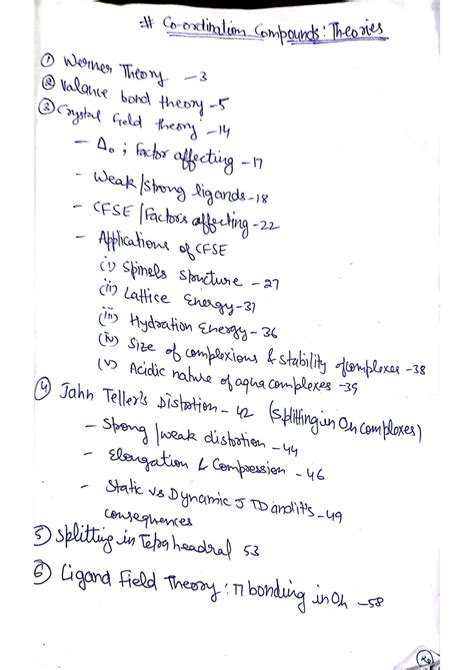 :# Co-ordination Compounds: Theories
① Werner Theory - 3
② Valance bond theory - 5
③ Crystal Field theory - 14
- Δo ; Factor affecting - 17
- Weak/strong ligands - 18
- CFSE / Factors affecting - 22
- Applications of CFSE
(i) Spinels Structure - 27
(ii) Lattice Energy - 31
(iii) Hydration Energy - 36
(iv) Size of complexions & stability of complexes - 38
(v) Acidic nature of aqua complexes - 39
④ Jahn Teller's Distortion - 42 (Splitting in Oh complexes)
- Strong / weak distortion - 44
- Elongation & Compression - 46
- Static vs Dynamic JTD and it's - 49
consequences
⑤ Splitting in Tetraheadral 53
⑥ Ligand Field Theory : π bonding in Oh - 58